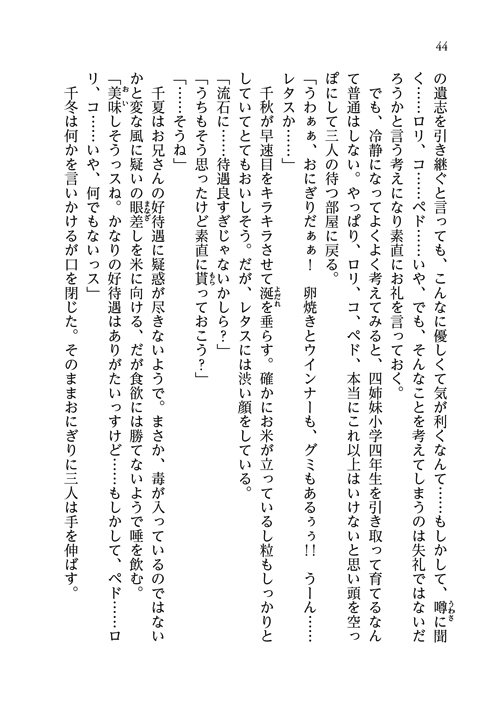 44
の遺志を引き継ぐと言っても、こんなに優しくて気が利くなんて……もしかして、噂に聞
く……ロリ、コ……ペド……いや、でも、そんなことを考えてしまうのは失礼ではないだ
ろうかと言う考えになり素直にお礼を言っておく。
でも、冷静になってよくよく考えてみると、四姉妹小学四年生を引き取って育てるなん
て普通はしない。やっぱり、ロリ、コ、ペド、本当にこれ以上はいけないと思い頭を空っ
ぽにして三人の待つ部屋に戻る。
「うわぁぁ、おにぎりだぁぁ！　卵焼きとウインナーも、グミもあるぅぅ!!　うーん……
レタスか……」
千秋が早速目をキラキラさせて涎を垂らす。確かにお米が立っているし粒もしっかりと
していてとてもおいしそう。だが、レタスには渋い顔をしている。
「流石に……待遇良すぎじゃないかしら？」
「うちもそう思ったけど素直に貰っておこう？」
「……そうね」
千夏はお兄さんの好待遇に疑惑が尽きないようで。まさか、毒が入っているのではない
かと変な風に疑いの眼差しを米に向ける、だが食欲には勝てないようで唾を飲む。
「美味しそうっスね。かなりの好待遇はありがたいっすけど……もしかして、ペド……ロ
リ、コ……いや、何でもないっス」
千冬は何かを言いかけるが口を閉じた。そのままおにぎりに三人は手を伸ばす。